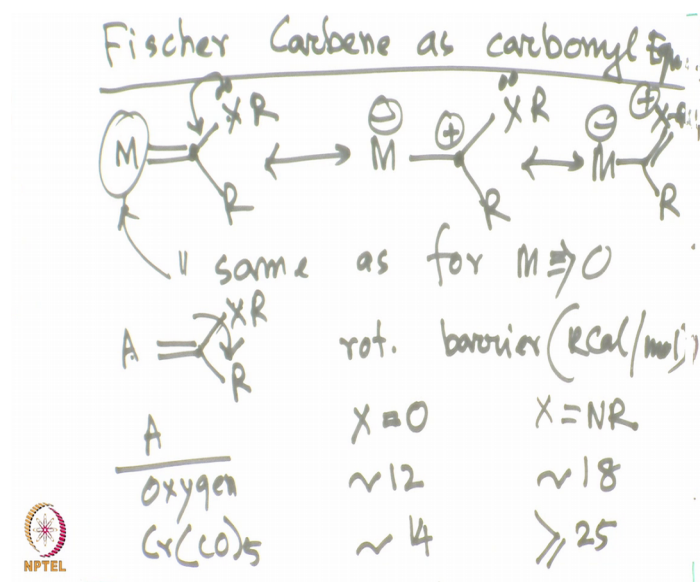 Fischer Carbene as carbonyl Equ
M = XR R ↔ ⊖ M — ⊕ XR R ↔ ⊖ M — ⊕ X R
" same as for M ⇒ O
A = XR R rot. barrier (kcal/mol)
A X = O X = NR
oxygen ~12 ~18
Cr(CO)5 ~14 ⩾25
NPTEL